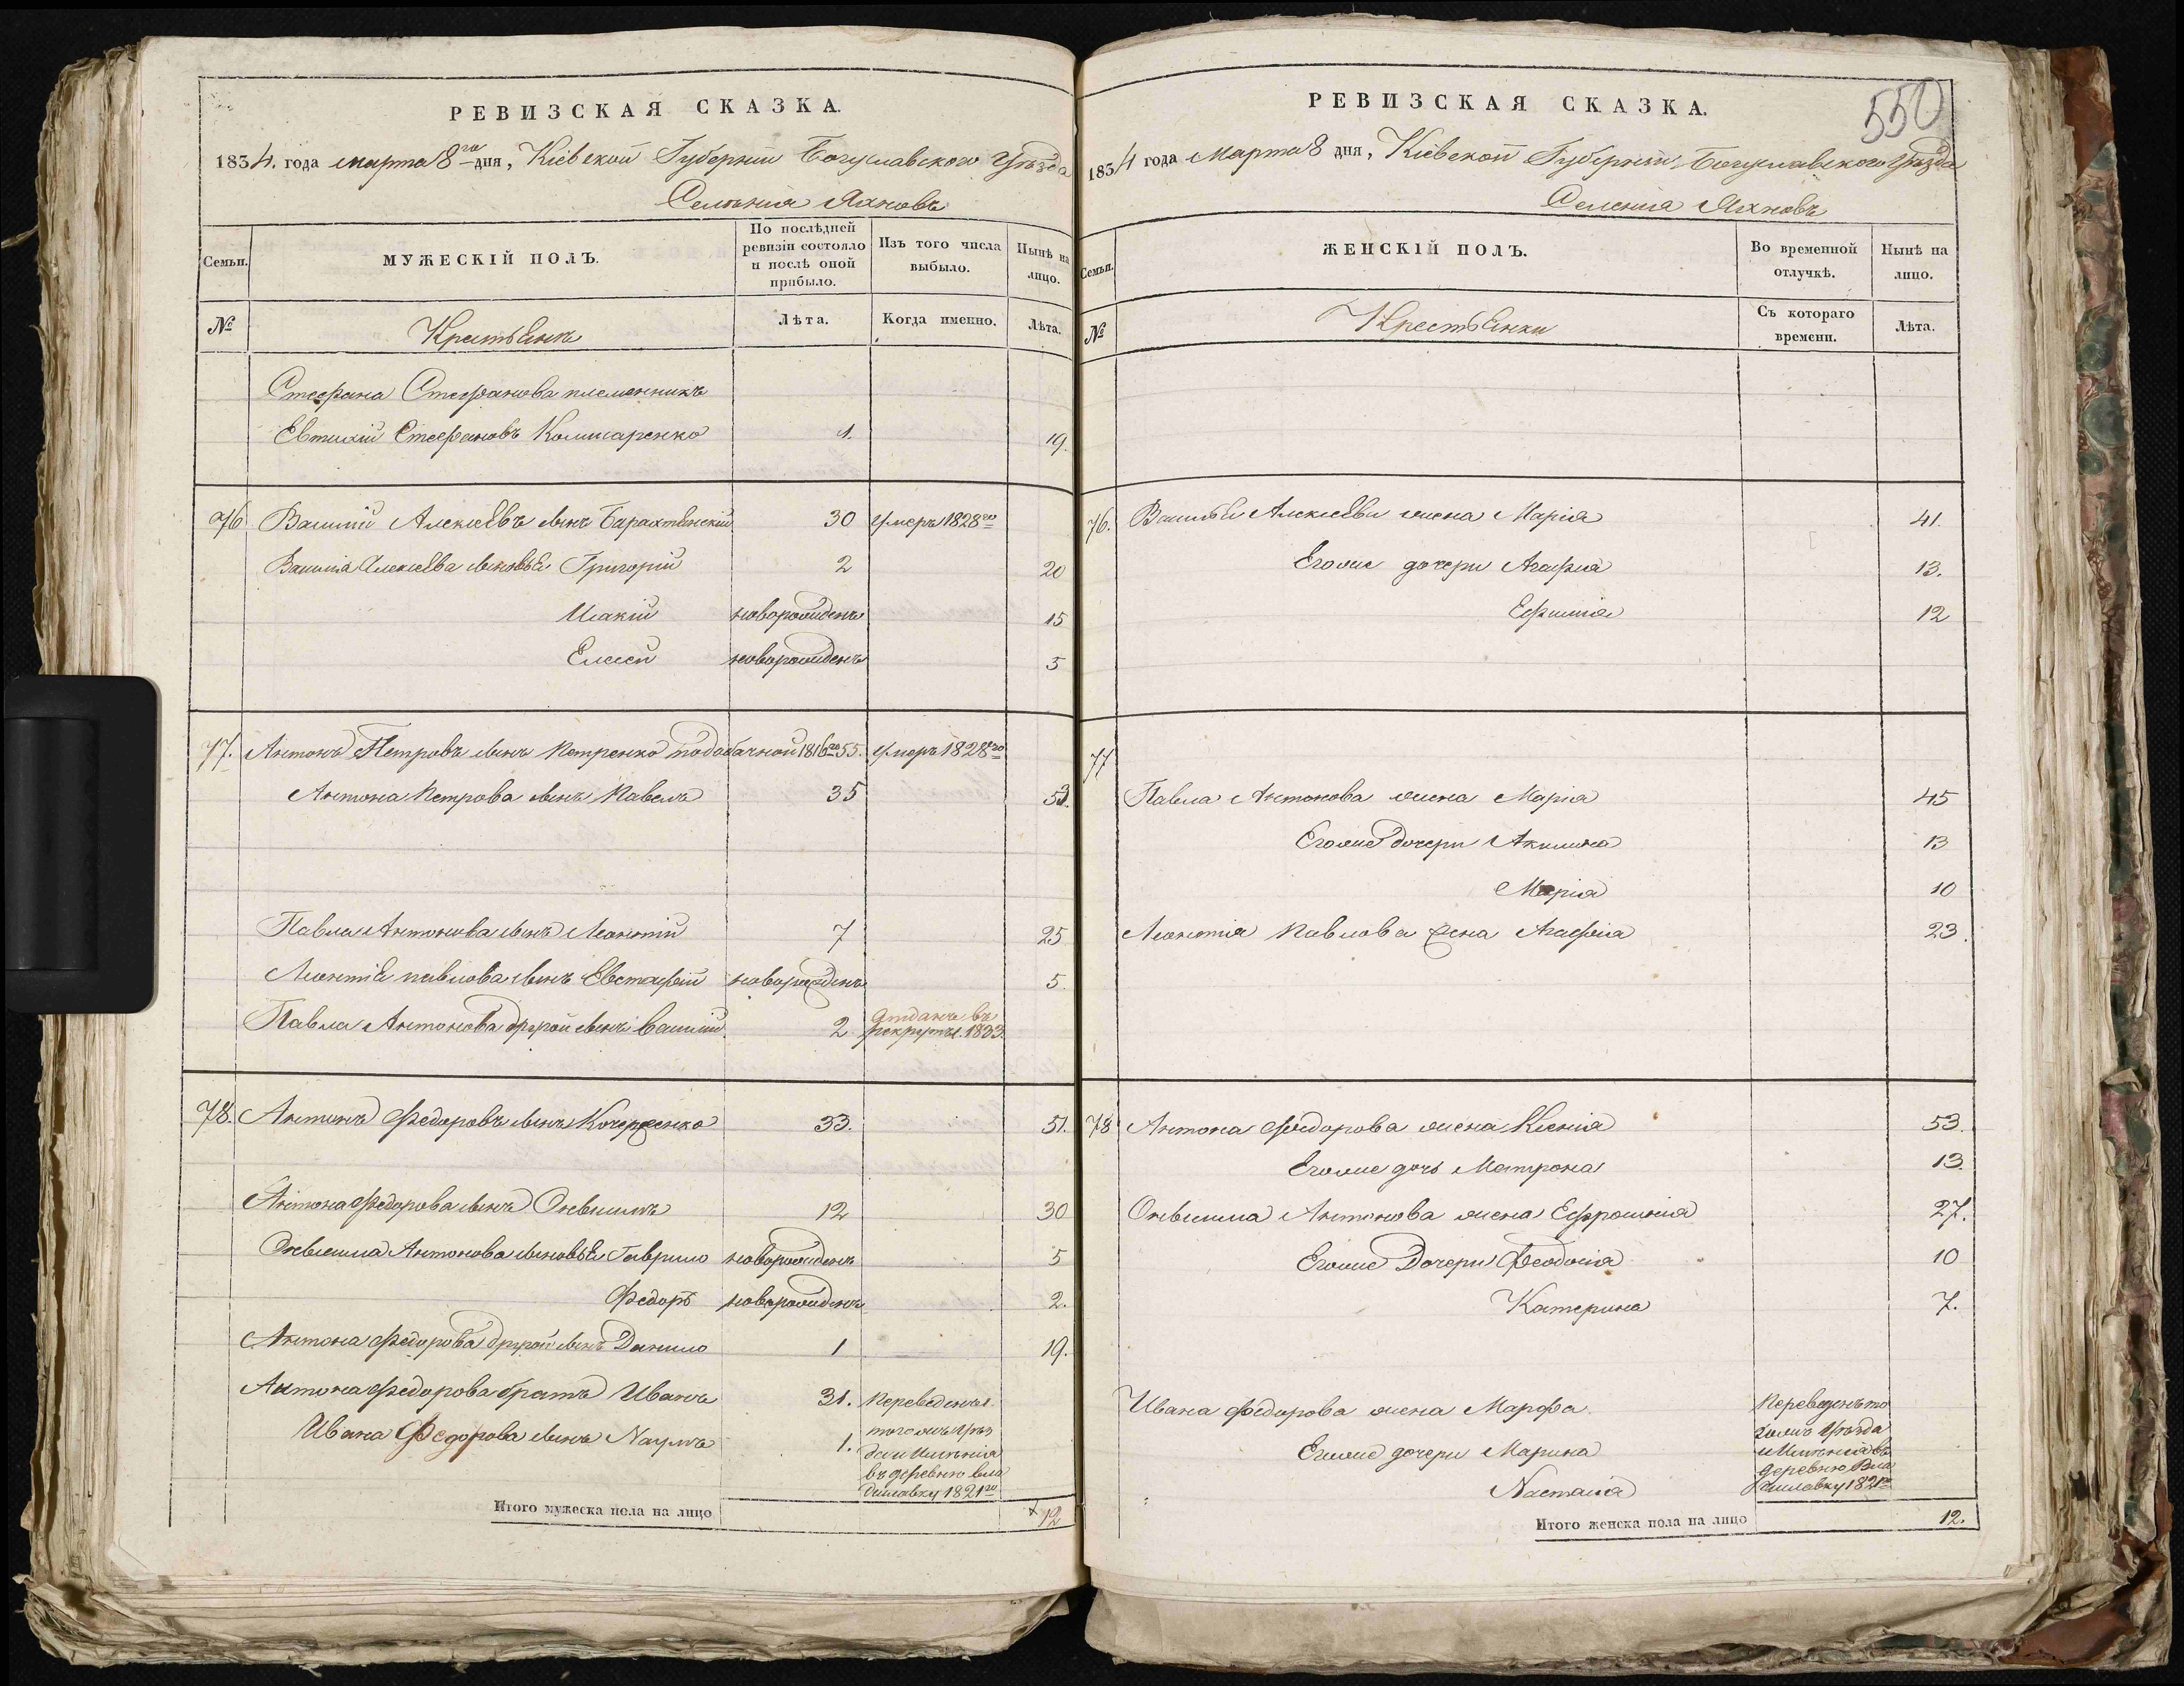 РЕВИЗСКАЯ СКАЗКА.
1834. года марта 8го дня, Кіевской Губерніи Богуславского Уѣзда
Селенія Яхновъ
Семьи.
МУЖЕСКІЙ ПОЛЪ.
По послѣдней ревизіи состояло и послѣ оной прибыло.
Изъ того числа выбыло.
Нынѣ на лицо.
№
Крестьянъ
Лѣта.
Когда именно.
Лѣта.
Стефана Стефанова племенникъ
Евтихій Стефановъ 1. 19.
76 Василій Алексѣевъ сынъ Барахтянскій 30 умеръ 1828го
Василія Алексѣева сыновья Григорій 2 20
Исакій новорожденъ 15
Елисей новорожденъ 5
77. Антонъ Петровъ сынъ Петренко 1816го 55. умеръ 1828го
Антона Петрова сынъ Павелъ 35 53.
Павла Антонова сынъ Леонтій 7 25
Леонтія павлова сынъ Евстафій новорожденъ 5.
Павла Антонова другой сынъ Василій 2 отданъ въ рекруты. 1833.
78. Антонъ Федоровъ сынъ 33. 51.
Антона Федорова сынъ Онисимъ 12 30
Онисима Антонова сыновья Гаврило новорожденъ 5
Федоръ новорожденъ 2.
Антона Федорова другой сынъ Данило 1 19.
Антона Федорова братъ Иванъ 31. переведены
Ивана Федорова сынъ Наумъ 1. того жъ уѣзда и Имѣнія въ деревню Владиславку 1821го
Итого мужеска пола на лицо 12
550
РЕВИЗСКАЯ СКАЗКА.
1834 года Марта 8 дня, Кіевской Губерніи, Богуславского Уѣзда
Селенія Яхновъ
Семьи.
ЖЕНСКІЙ ПОЛЪ.
Во временной отлучкѣ.
Нынѣ на лицо.
№
Крестьянки
Съ котораго времени.
Лѣта.
76. Василья Алексѣева жена Марія 41.
Егоже дочери Агафія 13.
Ефимія 12
77
Павла Антонова жена Марія 45
Егоже дочери Акилина 13
Марія 10
Леонтія Павлова жена Агафія 23.
78 Антона Федорова жена Ксенія 53.
Егоже дочь Матрона 13.
Онисима Антонова жена Ефросинія 27.
Егоже Дочери Феодосія 10
Катерина 7.
Ивана Федорова жена Марфа переведены то
Егоже дочери Марина гожъ Уѣзда и Имѣнія въ
Настасія деревню Владиславку 1821го
Итого женска пола на лицо 12.